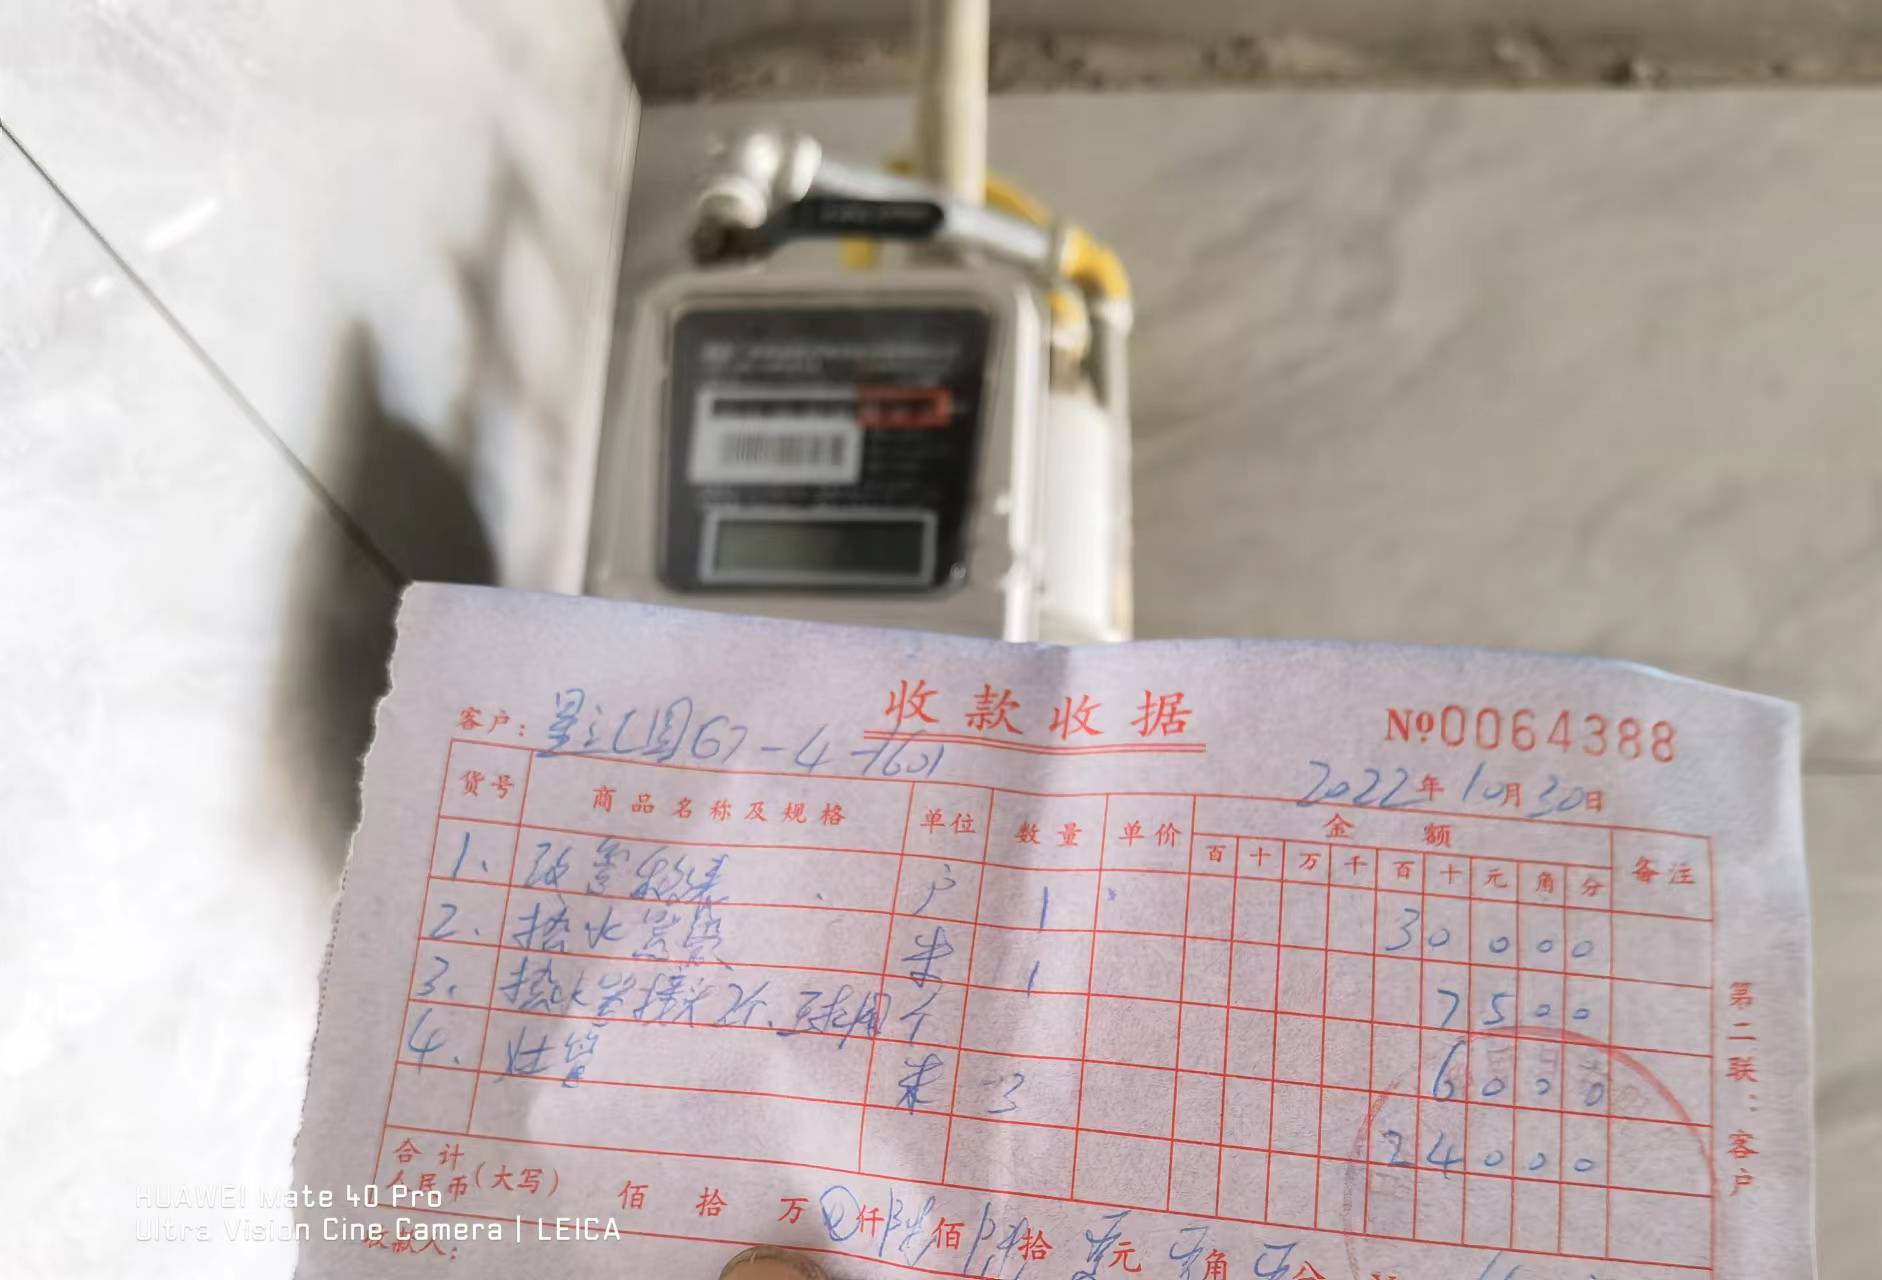 收款收据
№0064388
客户：星汇园67-4-1601
2022年10月30日
货号 商品名称及规格 单位 数量 单价 金额 备注
百 十 万 千 百 十 元 角 分
1、 改 户 1 30000
2. 热水器管 米 1 7500
3. 热水器接头2个、球阀 个 6000
4. 灶管 米 3 24000
合计
人民币(大写) 佰 拾 万 仟 陆佰 拾 元 角 分
收款人：
第二联：客户
HUAWEI Mate 40 Pro
Ultra Vision Cine Camera | LEICA